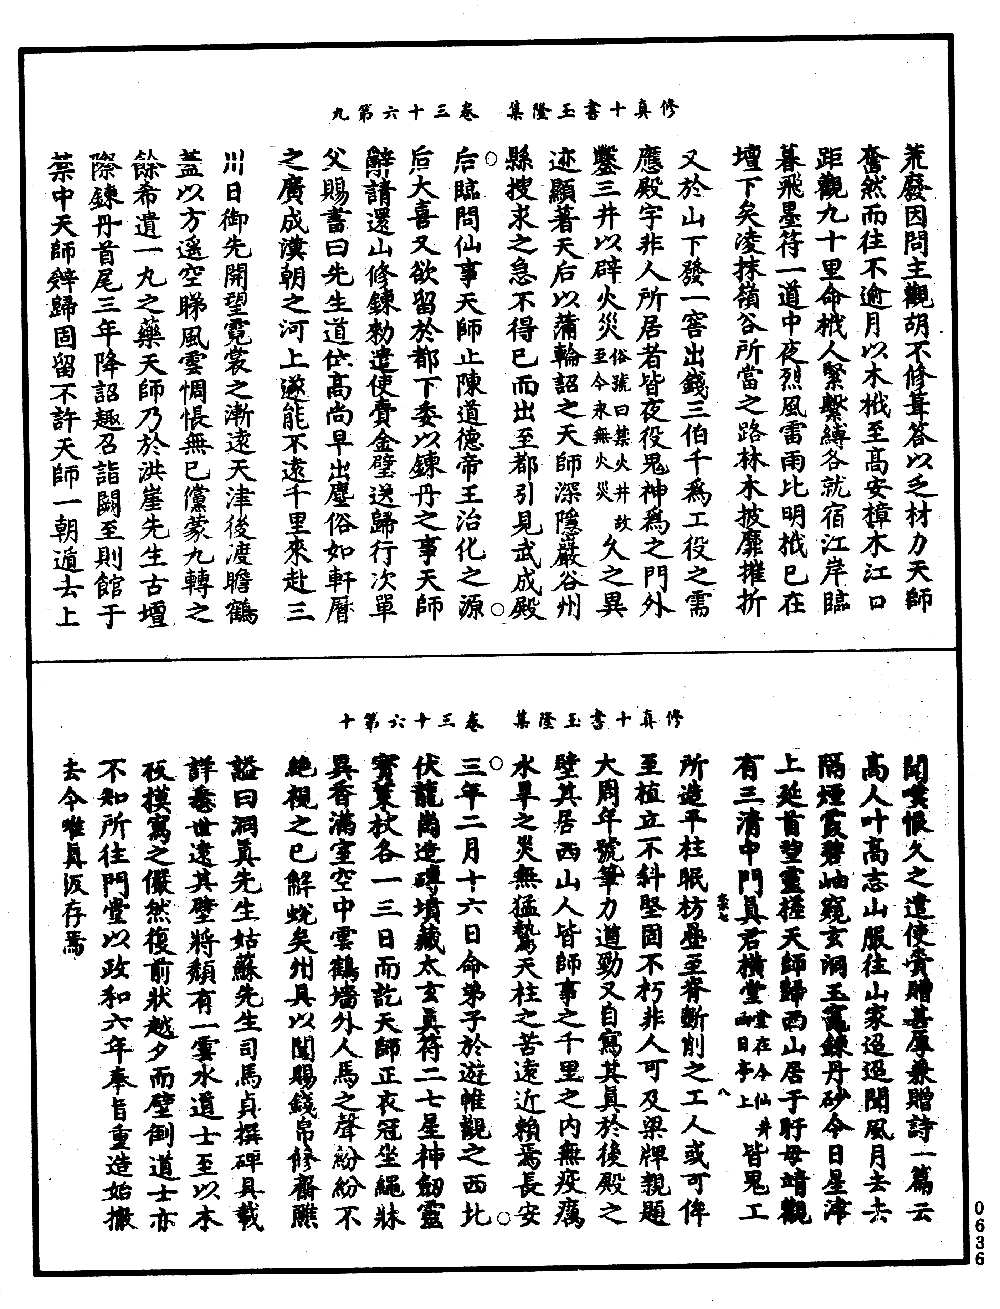 修真十書玉隆集　卷三十六第九
荒廢因問主觀胡不修葺答以乏材力天師
奮然而往不逾月以木栰至高安樟木江口
距觀九十里命栰人緊繫縛各就宿江岸臨
暮飛墨符一道中夜烈風雷雨比明栰已在
壇下矣凌抹嶺谷所當之路林木披靡摧折
又於山下發一窖出錢三伯千爲工役之需
應殿宇非人所居者皆夜役鬼神爲之門外
鑿三井以辟火災俗號曰禁火井故至今永無火災久之異
迹顯著天后以蒲輪詔之天師深隱巖谷州
縣搜求之急不得已而出至都引見武成殿
后臨問仙事天師止陳道德帝王治化之源
后大喜又欲留於都下委以鍊丹之事天師
辭請還山修鍊勅遣使賫金璧送歸行次單
父賜書曰先生道位高尚早出塵俗如軒曆
之廣成漢朝之河上遂能不遠千里來赴三
川日御先開望霓裳之漸遠天津後渡瞻鶴
蓋以方遙空睇風雲惆悵無已儻蒙九轉之
餘希遺一九之藥天師乃於洪崖先生古壇
際鍊丹首尾三年降詔趣召詣闕至則館于
禁中天師辭歸固留不許天師一朝遁去上
修真十書玉隆集　卷三十六第十
聞嘆恨久之遣使賫贈甚厚兼贈詩一篇云
高人叶高志山服往山家迢迢聞風月去去
隔煙霞碧岫窺玄洞玉竈鍊丹砂今日星津
上延首望靈槎天師歸西山居于盱母靖觀
有三清中門真君橫堂堂在今仙井亭上皆鬼工
所造平柱眠枋疊至脊斷削之工人或可俾
至植立不斜堅固不朽非人可及梁牌親題
大周年號筆力遒勁又自寫其真於後殿之
壁其居西山人皆師事之千里之内無疫癘
水旱之災無猛鷙天柱之苦遠近賴焉長安
三年二月十六日命弟子於遊帷觀之西北
伏龍崗造磚墳藏太玄真符二七星神劒靈
寶策杖各一三日而訖天師正衣冠坐繩牀
異香滿室空中雲鶴墻外人馬之聲紛紛不
絶視之已解蛻矣州具以聞賜錢帛修齋醮
謚曰洞真先生姑蘇先生司馬貞撰碑具載
詳悉世遠其壁將頽有一雲水道士至以木
板摸寫之儼然復前狀越夕而壁倒道士亦
不知所往門疊以政和六年奉旨重造始撤
去今唯真板存焉
0636